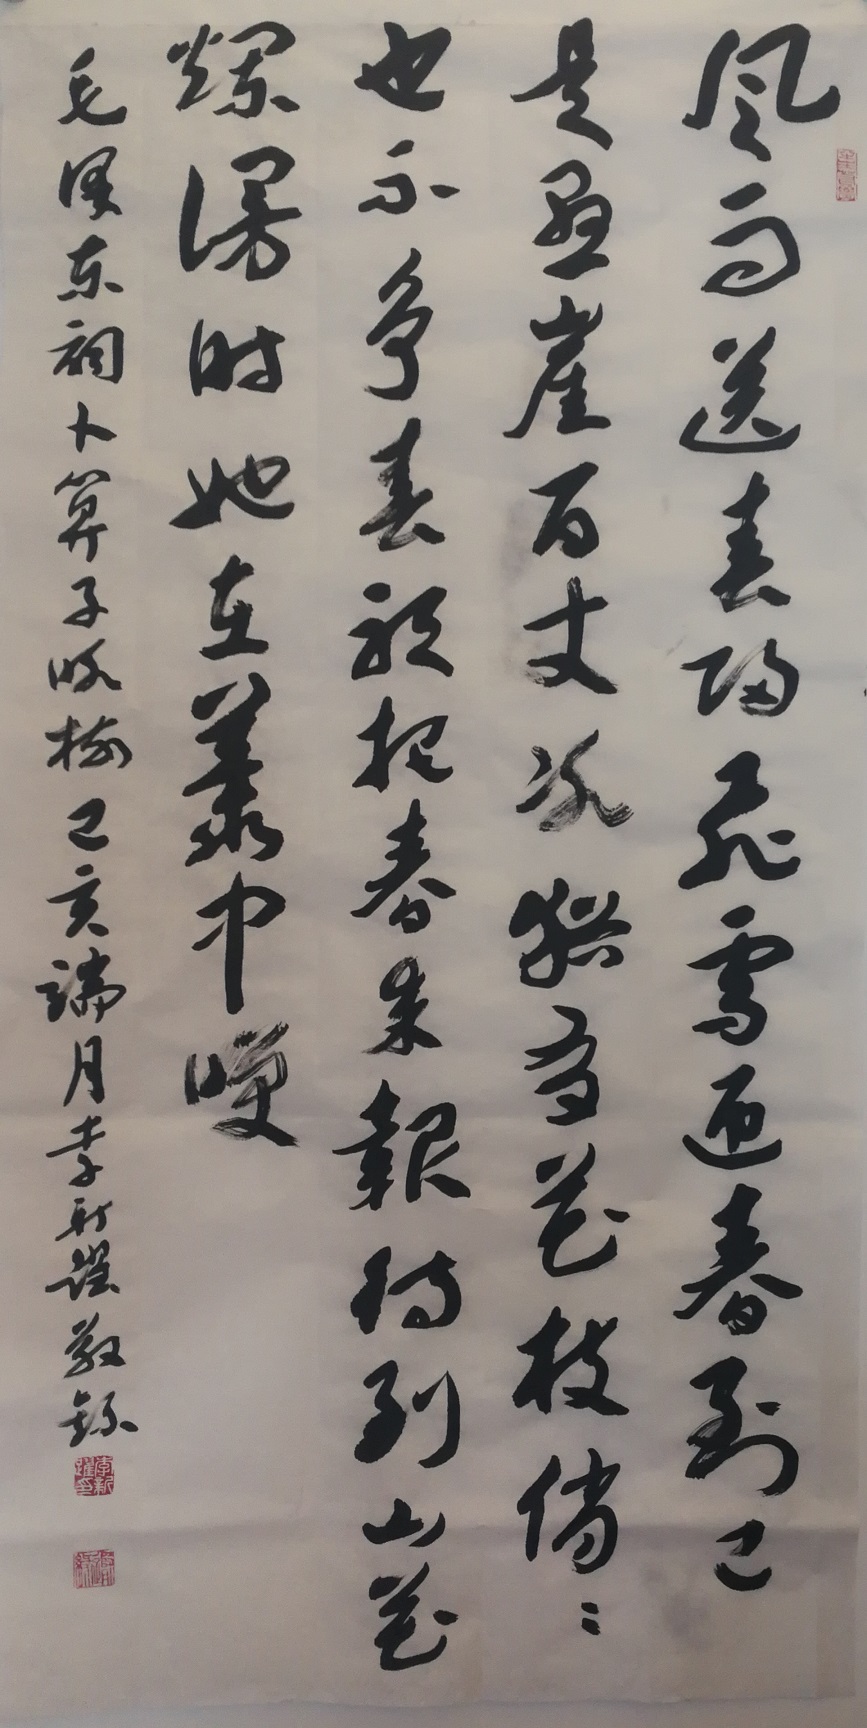 风雨送春归飞雪迎春到已
是悬崖百丈冰犹有花枝俏〻
也不争春祇把春来报待到山花
烂漫时她在丛中笑
毛泽东词卜算子咏梅己亥端月李新跃敬录
李新跃印